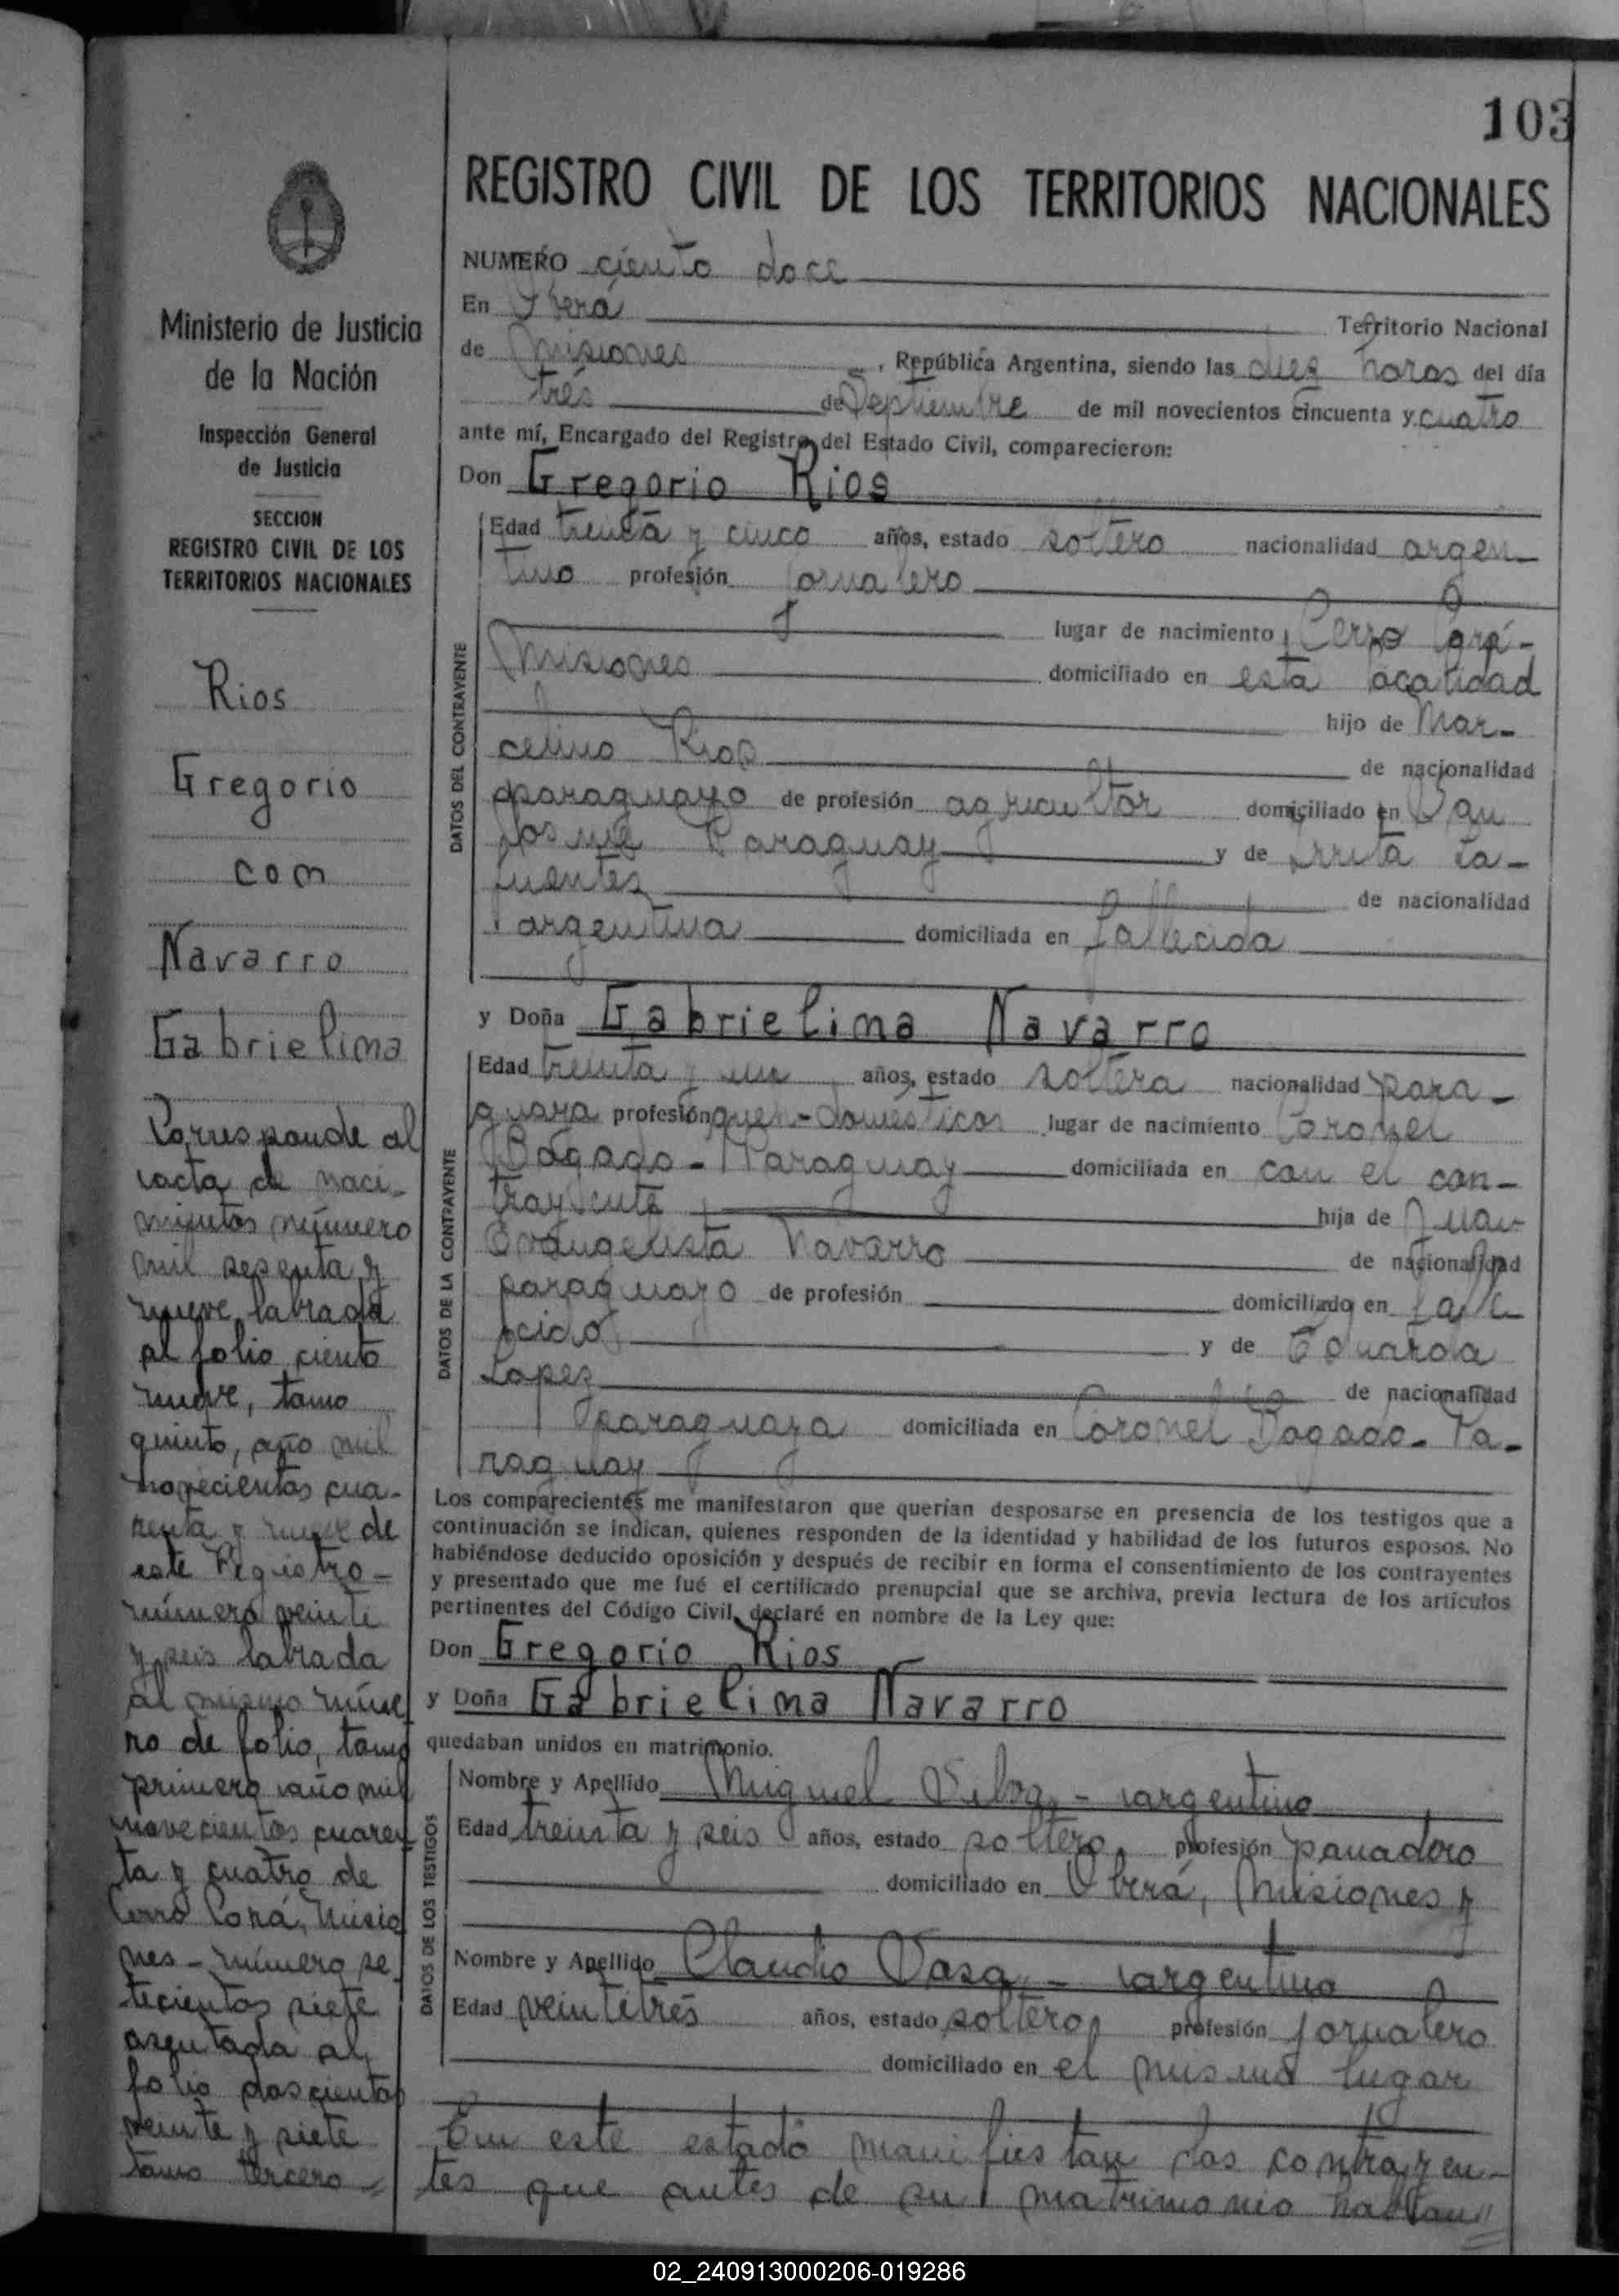 103
REGISTRO CIVIL DE LOS TERRITORIOS NACIONALES
Ministerio de Justicia
de la Nación
Inspección General
de Justicia
SECCION
REGISTRO CIVIL DE LOS
TERRITORIOS NACIONALES
Rios
Gregorio
con
Navarro
Gabrielina
Corresponde al
acta de naci-
mientos número
mil sesenta y
nueve labrada
al folio ciento
nueve, tomo
quinto, año mil
novecientos cua-
renta y nueve de
este Registro -
número veinte
y seis labrada
al mismo núme
ro de folio, tomo
primero año mil
novecientos cuaren
ta y cuatro de
Cerro Corá, Misio
nes - número se
tecientos siete
asentada al
folio doscientos
veinte y siete
tomo tercero
NUMERO ciento doce
En Oberá Territorio Nacional
de Misiones, República Argentina, siendo las diez horas del día
tres de Septiembre de mil novecientos cincuenta y cuatro
ante mí, Encargado del Registro del Estado Civil, comparecieron:
Don Gregorio Rios
DATOS DEL CONTRAYENTE
Edad treinta y cinco años, estado soltero nacionalidad argen-
tino profesión jornalero
lugar de nacimiento Cerro Corá-
Misiones domiciliado en esta localidad
hijo de Mar-
celino Rios de nacionalidad
paraguayo de profesión agricultor domiciliado en
Paraguay y de La-
fuentes de nacionalidad
argentina domiciliada en fallecida
y Doña Gabrielina Navarro
DATOS DE LA CONTRAYENTE
Edad treinta y un años, estado soltera nacionalidad para-
guaya profesión queh-domésticos lugar de nacimiento Coronel
Bogado - Paraguay domiciliada en con el con-
trayente hija de Juan
Evangelista Navarro de nacionalidad
paraguayo de profesión domiciliado en falle
cido y de Eduarda
Lopez de nacionalidad
paraguaya domiciliada en Coronel Bogado - Pa-
raguay
Los comparecientes me manifestaron que querían desposarse en presencia de los testigos que a
continuación se indican, quienes responden de la identidad y habilidad de los futuros esposos. No
habiéndose deducido oposición y después de recibir en forma el consentimiento de los contrayentes
y presentado que me fué el certificado prenupcial que se archiva, previa lectura de los artículos
pertinentes del Código Civil, declaré en nombre de la Ley que:
Don Gregorio Rios
y Doña Gabrielina Navarro
quedaban unidos en matrimonio.
DATOS DE LOS TESTIGOS
Nombre y Apellido Miguel - argentino
Edad treinta y seis años, estado soltero profesión panadero
domiciliado en Oberá, Misiones y
Nombre y Apellido Claudio - argentino
Edad veintitrés años, estado soltero profesión jornalero
domiciliado en el mismo lugar
En este estado manifiestan los contrayen-
tes que antes de su matrimonio habian
02_240913000206-019286